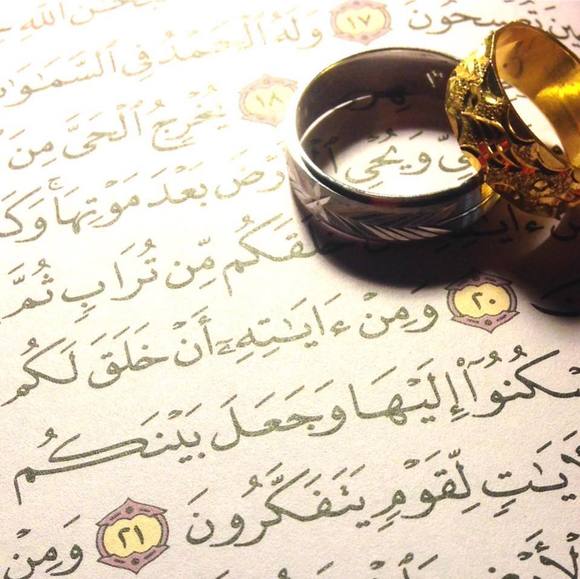 ٱللَّهِ
تُصْبِحُونَ ١٧ وَلَهُ ٱلْحَمْدُ فِي ٱلسَّمَـٰوَٰ
١٨ يُخْرِجُ ٱلْحَىَّ مِنَ
وَيُحْىِ ٱلْأَرْضَ بَعْدَ مَوْتِهَا ۚ وَكَ
خَلَقَكُم مِّن تُرَابٍ ثُمَّ
٢٠ وَمِنْ ءَايَـٰتِهِۦٓ أَنْ خَلَقَ لَكُم
ـسْكُنُوٓا۟ إِلَيْهَا وَجَعَلَ بَيْنَكُم
ـَٔايَـٰتٍ لِّقَوْمٍ يَتَفَكَّرُونَ ٢١ وَمِنْ